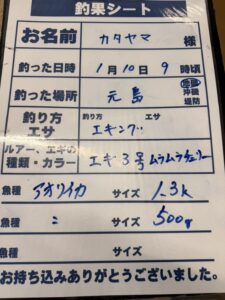 釣果シート
お名前 カタヤマ 様
釣った日時 1月10日9時頃
釣った場所 元島 地磯 沖磯 堤防
釣り方 エサ 釣り方 エサ エギング
ルアー、エギの種類・カラー エギ3号ムラムラチェリー
魚種 アオリイカ サイズ 1.3k
魚種 〃 サイズ 500g
魚種 サイズ
お持ち込みありがとうございました。